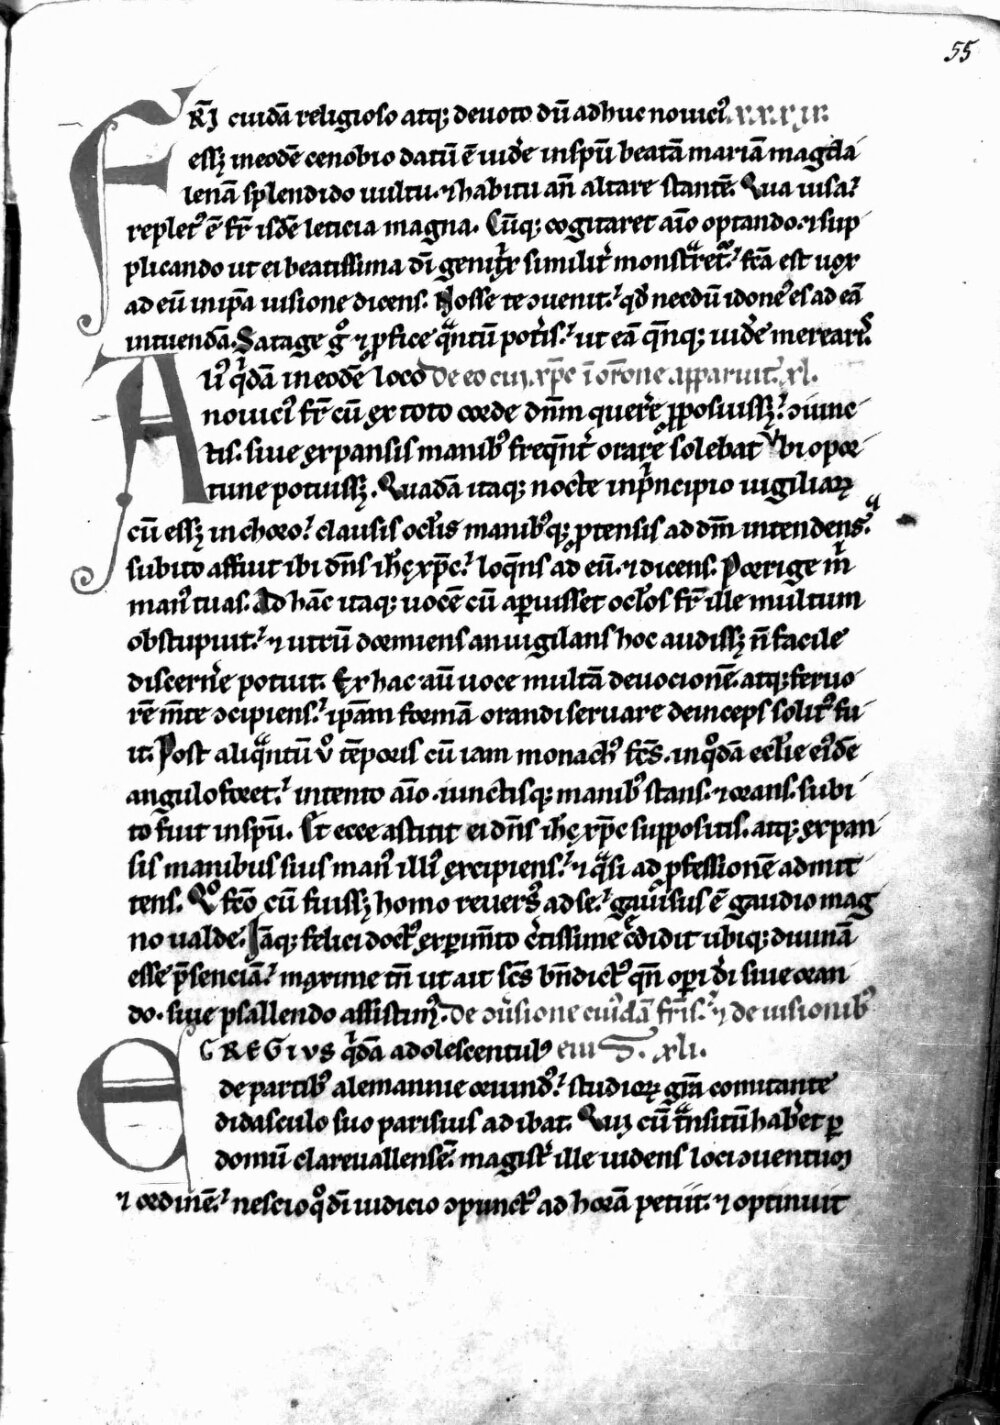 55
FRI cuidā religioso atq; deuoto dū adhuc nouici᷒ xxxix.
ess; in eodē cenobio datū ē uide᷑ in sp̄u beatā mariā magda
lenā splendido uultu. ⁊ habitu an̄ altare stantē. Qua uisa.
replet᷒ ē fr̄ isdē leticia magna. Cūq; cogitaret aīo optando. ⁊ sup
plicando ut ei beatissima dī genitᷓx similit᷑ monstᷓret᷑. fc̄a est uox
ad eū in ip̄a uisione dicens. Nosse te ꝯuenit. qd̄ necdū idone᷒ es ad eā
intuendā. Satage gͦ ⁊ ꝓfice qͣntū pot᷑is. ut eā qn̄q; uide᷑ merearis.
Ali᷒ qͥdā in eodē loco De eo cui xp̄c ī or̄one apparuit. xl.
nouici᷒ fr̄ cū ex toto corde dn̄m quere᷑ ꝓposuiss;. ꝯiunc
tis. siue expansis manib᷒ freqn̄t᷑ orare solebat ubi opor
tune potuiss;. Quadā itaq; nocte in pͥncipio uigiliaꝝ
cū ess; in choro. clausis ocl̄is manib᷒q; ꝓtensis ad dn̄m intendens.
subito affuit ibi dn̄s ih̄c xp̄c. loqͣns ad eū. ⁊ dicens. Porrige mͥ
man᷒ tuas. Ad hāc itaq; uocē cū apuisset ocl̄os fr̄ ille multum
obstupuit. ⁊ utrū dormiens an uigilans hoc audiss; n̄ facile
discerne᷑ potuit. Ex hac aū uoce multā deuocionē. atq; feruo
rē m̄te ꝯcipiens. ip̄am formā orandi seruare deinceps solit᷒ fu
it. Post aliqͣntū uͦ tēporis cū iam monach᷒ fc̄s. in qͦdā eccl̄ie ei᷒dē
angulo foret. intento aīo. iunctisq; manib᷒ stans. ⁊ orans. subi
to fuit in sp̄u. Et ecce astitit ei dn̄s ih̄c xp̄c suppositis. atq; expan
sis manibus suis man᷒ illi᷒ excipiens. ⁊ qͣsi ad ꝓfessionē admit
tens. Qͦ fc̄o cū fuiss; homo reuers᷒ ad se. gauisus ē gaudio mag
no ualde. Iāq; felici doct᷒ expim̄to c᷑tissime c᷑didit ubiq; diuinā
esse p̄senciā. maxime tn̄ ut ait sc̄s bn̄dict᷒ qn̄ operi dī siue oran
do. siue psallendo assistim᷒. De ꝯuersione cui᷒dā fr̄is. ⁊ de uisionib᷒
EGREGIUS qͥdā adolescentul᷒ eius. xli.
de partib᷒ alemannie oriund᷒. studioꝝ gr̄a comitante
didasculo suo parisius adibat. Qui cū tͣnsitū haberet ꝑ
domū clareuallensē. magist᷑ ille uidens loci ꝯuentum
⁊ ordinē. nescio qͦ dī iudicio ꝯpunct᷒ ad horā petiit. ⁊ optinuit